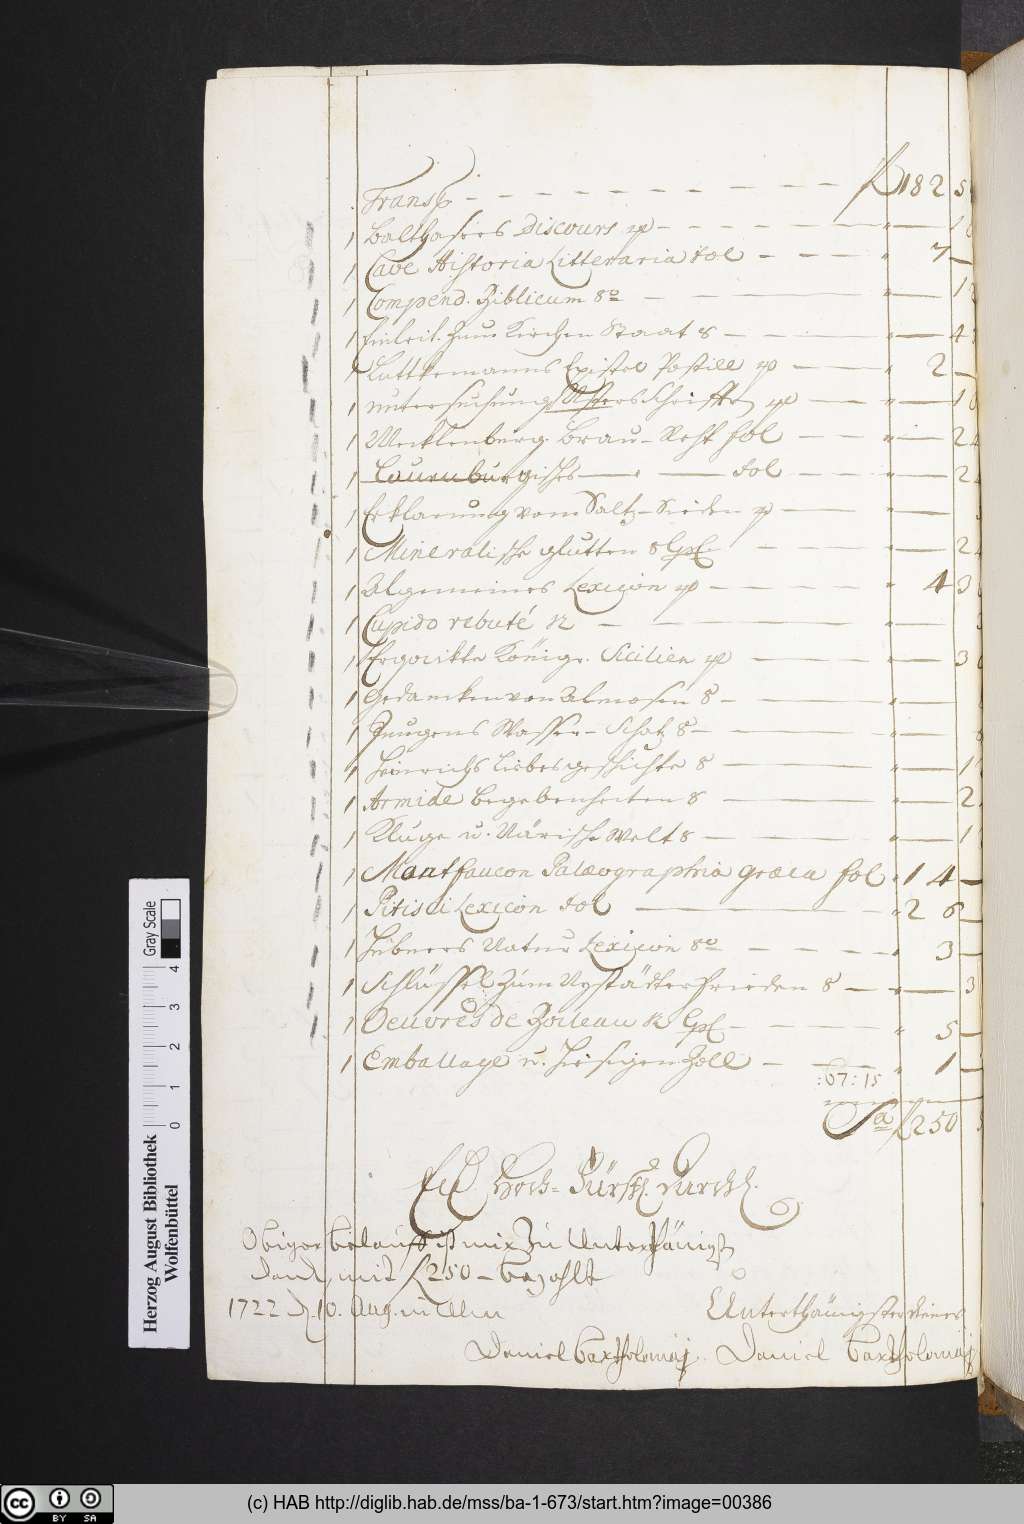 Transp. f 182 5
1 Balthasars Discours 4° 1
1 Cave Historia Litteraria fol 7 —
1 Compend. Biblicum 8° 1
1 Einleit. zum Kirchen Staat 8 4
1 Luttkemanns Epistel Postill 4° 2 —
1 Untersuchung Schrifften 4° 1
1 Mecklenburg. Brau-Recht fol 2
1 Lauenburgisches fol 2
1 Erklarung vom Saltz-Sieden 4°
1 Mineralische glutten 8 2
1 Algemeines Lexicon 4° 4 3
1 Cupido rebuté 12
1 Königr. Sicilien 4° 3
1 Gedancken von Almosen 8
1 Zeugens Wasser-Schatz 8
1 Heinrichs Liebesgeschichte 8 1
1 Armide Begebenheiten 8 2
1 Kluge u. Närrische Welt 8 1
1 Montfaucon Palæographia græca fol 14 —
1 Pitisci Lexicon fol 26 —
1 Hübners Natur Lexicon 8° 3 —
1 Schlüssel zum Nystädter Frieden 8 3
1 Oeuvres de Boileau 12 5 —
1 Emballage u. hiesigen Zoll 1 —
:67:15
Sa f 250
Ew. Hoch-Fürstl. Durchl.
Obiger belauff ist mir zu Unterthänigst
danck mit f 250 — bezahlt
1722 d. 10. Aug. in Ulm
Unterthänigster diener
Daniel Bartholomäj. Daniel Bartholomäj
Herzog August Bibliothek
Wolfenbüttel
0 1 2 3 4
Gray Scale
cc BY SA
(c) HAB http://diglib.hab.de/mss/ba-1-673/start.htm?image=00386